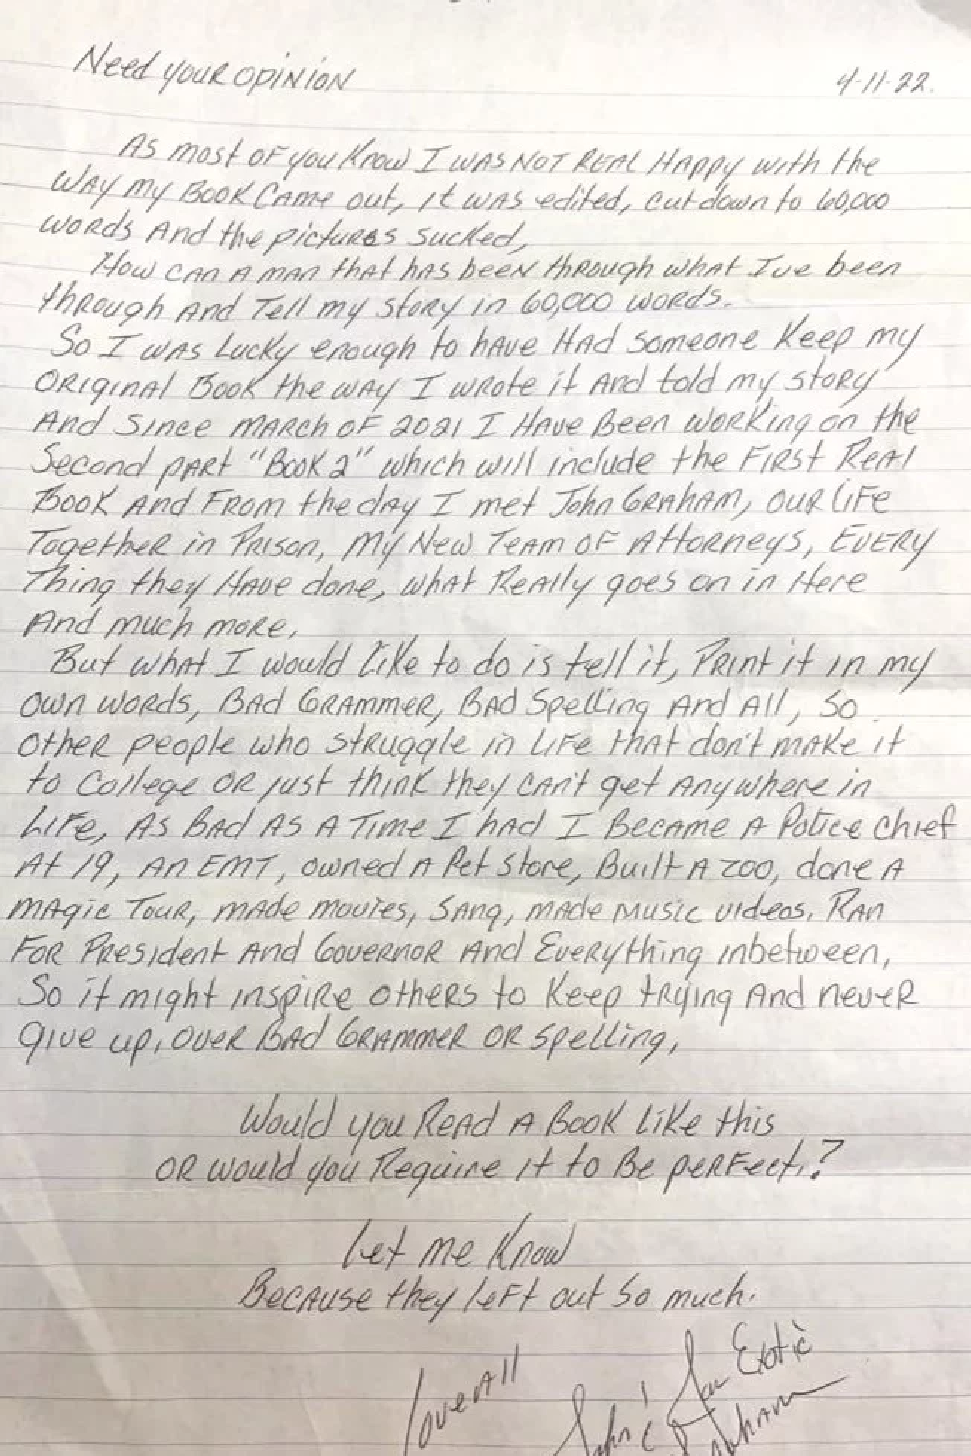 Need your opinion 4-11-22.
As most of you know I was not real happy with the
way my Book came out, it was edited, cut down to 60,000
words and the pictures sucked,
How can a man that has been through what I've been
through and tell my story in 60,000 words.
So I was lucky enough to have had someone keep my
original Book the way I wrote it and told my story
and since March of 2021 I have been working on the
second part "Book 2" which will include the First Real
Book and from the day I met John Graham, our life
together in Prison, my New Team of Attorneys, Every
thing they have done, what really goes on in here
and much more.
But what I would like to do is tell it, Print it in my
own words, Bad Grammer, Bad Spelling and all, so
other people who struggle in life that don't make it
to College or just think they can't get anywhere in
Life, as bad as a time I had I became a Police Chief
at 19, an EMT, owned a Pet Store, Built a zoo, done a
magic Tour, made movies, sang, made music videos, Ran
for President and Governor and Everything inbetween,
So it might inspire others to keep trying and never
give up, over Bad Grammer or spelling,
Would you Read a Book like this
or would you Require it to be perfect.?
Let me know
Because they left out so much.
Love All
John & Joe Exotic